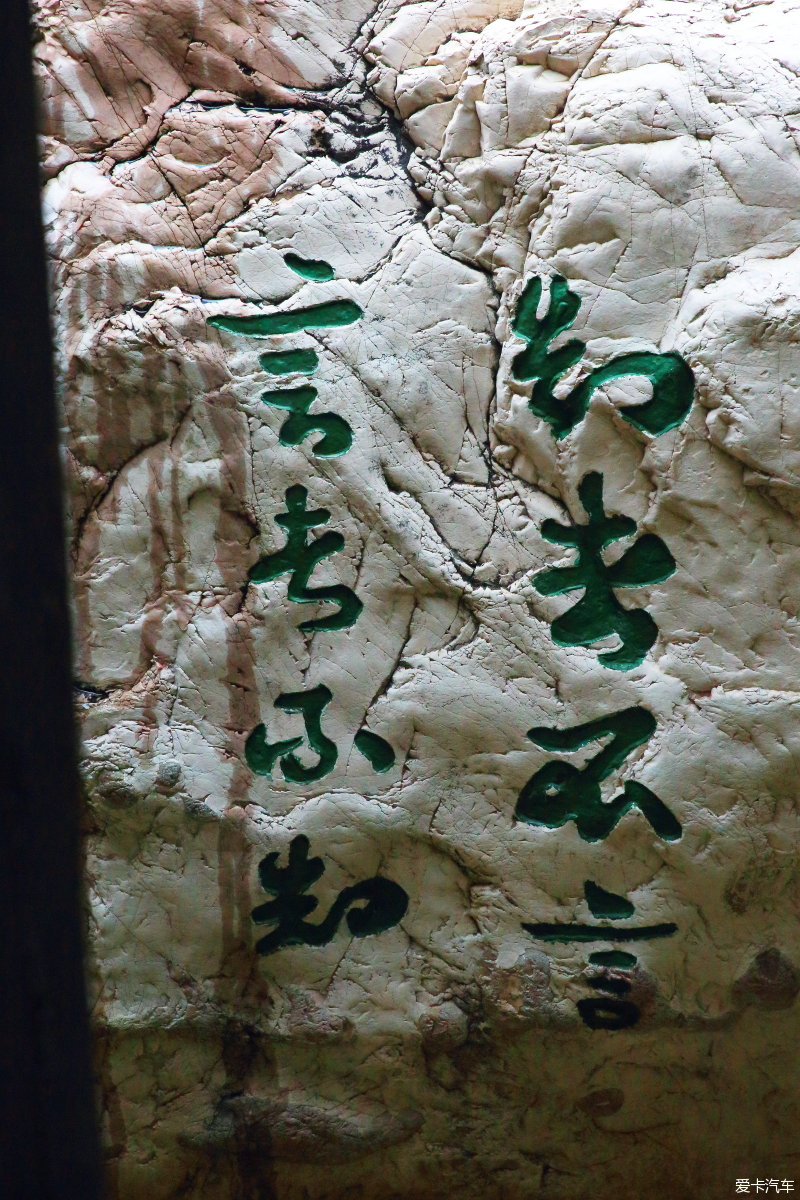 知者不言
言者不知
爱卡汽车